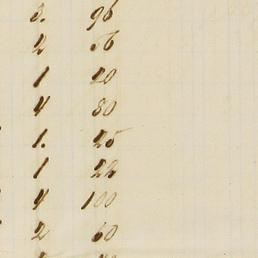 3. 96
2 56
1 20
4 80
1. 25
1 22
4 100
2 60